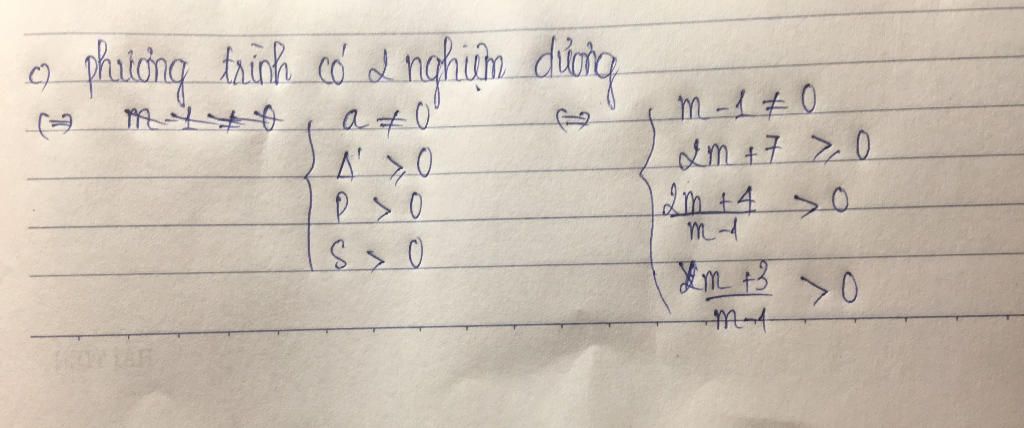 c) phương trình có 2 nghiệm dương
<=> m - 1 ≠ 0 { a ≠ 0 <=> { m - 1 ≠ 0
Δ' ≥ 0 2m + 7 ≥ 0
P > 0 2m + 4 / m - 1 > 0
S > 0 m + 3 / m - 1 > 0